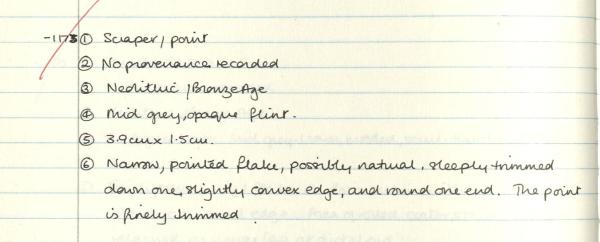 -1173 ① Scraper / point
② No provenance recorded
③ Neolithic / Bronze Age
④ Mid grey, opaque flint.
⑤ 3.9cm x 1.5cm.
⑥ Narrow, pointed flake, possibly natural, steeply trimmed
down one, slightly convex edge, and round one end. The point
is finely trimmed.